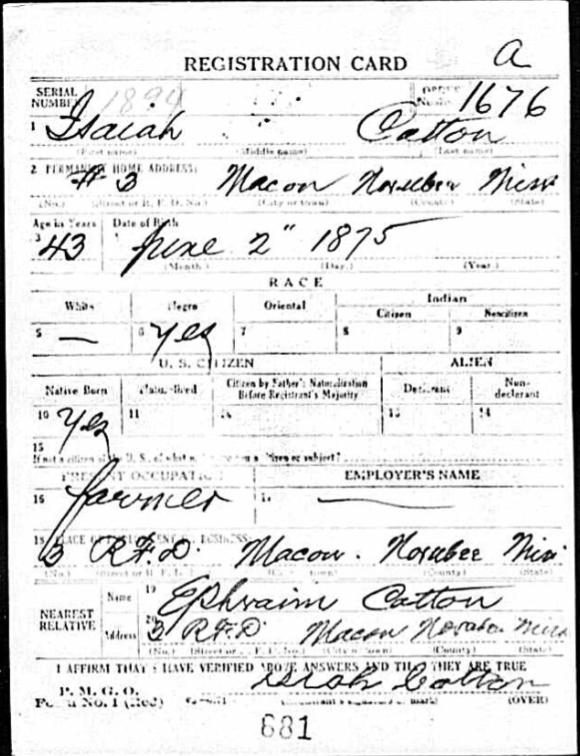 A
REGISTRATION CARD
SERIAL NUMBER 1894 ORDER NUMBER 1676
1 Isaiah Catton
(First name) (Middle name) (Last name)
2 PERMANENT HOME ADDRESS:
# 3 Macon Noxubee Miss
(No.) (Street or R. F. D. No.) (City or town) (County) (State)
Age in Years Date of Birth
3 43 4 June 2" 1875
(Month.) (Day.) (Year.)
RACE
White Negro Oriental Indian
Citizen Noncitizen
5 — 6 yes 7 8 9
U. S. CITIZEN ALIEN
Native Born Naturalized Citizen by Father's Naturalization Before Registrant's Majority Declarant Non-declarant
10 Yes 11 12 13 14
15
If not a citizen of the U. S., of what nation are you a citizen or subject?
PRESENT OCCUPATION EMPLOYER'S NAME
16 farmer 17 —
18 PLACE OF EMPLOYMENT OR BUSINESS:
3 R.F.D. Macon. Noxubee Miss
(No.) (Street or R. F. D. No.) (City or town) (County) (State)
NEAREST RELATIVE
Name 19 Ephraim Catton
Address 20 3 R.F.D Macon Noxubee Miss
(No.) (Street or R. F. D. No.) (City or town) (County) (State)
I AFFIRM THAT I HAVE VERIFIED ABOVE ANSWERS AND THAT THEY ARE TRUE
P. M. G. O.
Form No. 1 (Red) Isiah Catton
(Registrant's signature or mark) (OVER)
681